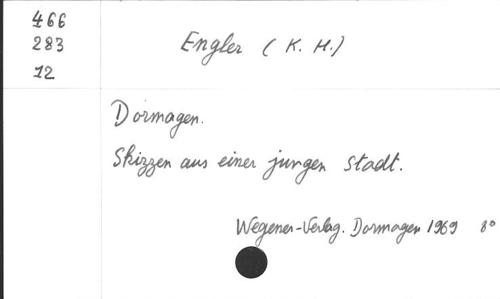 466
283
12
Engler (K. H.)
Dormagen.
Skizzen aus einer jungen Stadt.
Wegener-Verlag. Dormagen 1969 8°